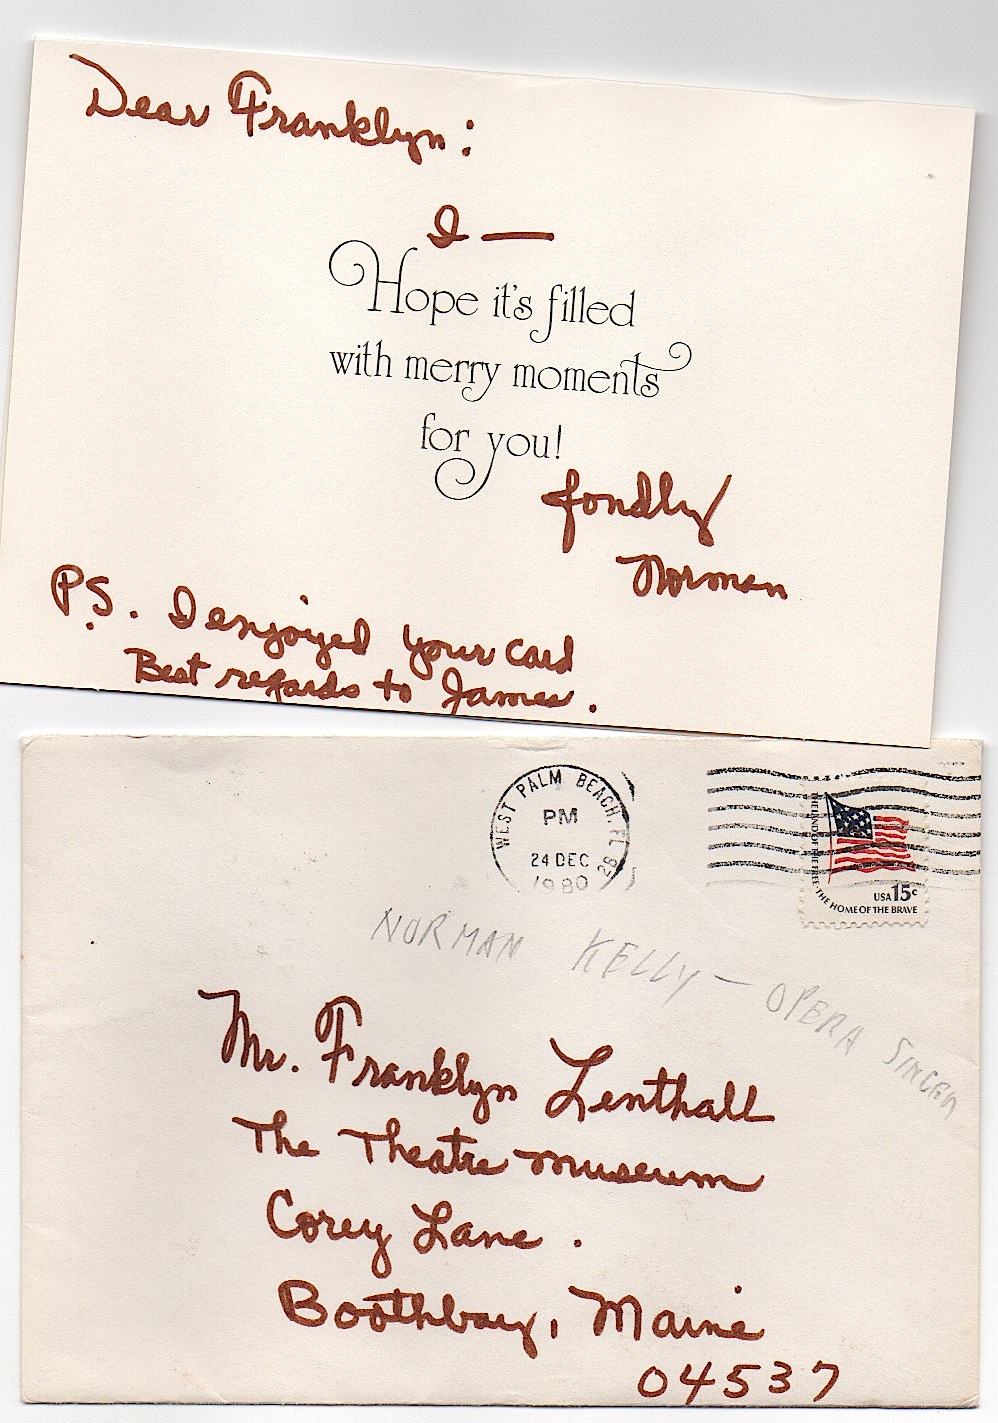 Dear Franklyn:
I —
Hope it's filled
with merry moments
for you!
fondly
Norman
P.S. I enjoyed your card
Best regards to James.
WEST PALM BEACH, FL
PM
24 DEC
1980
2B
THE LAND OF THE FREE · THE HOME OF THE BRAVE
USA 15c
NORMAN KELLY — OPERA SINGER
Mr. Franklyn Lenthall
The Theatre museum
Corey Lane.
Boothbay, Maine
04537